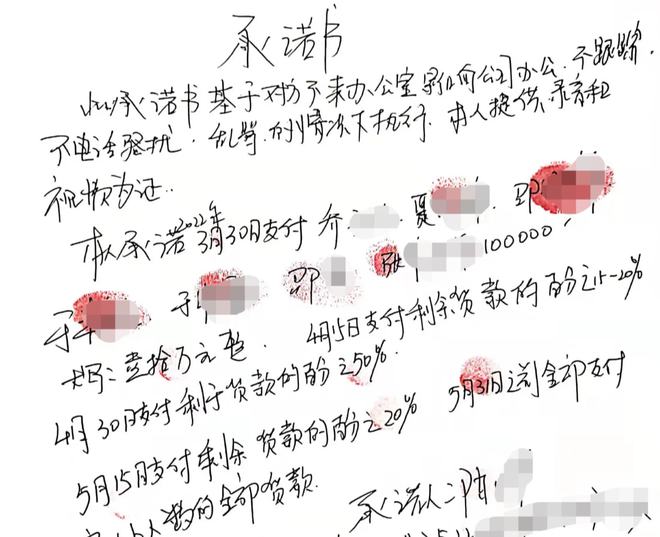 承诺书
此承诺书基于对方不来办公室影响公司办公.不跟踪.
不电话骚扰.等.的情况下执行.本人提供录音和
视频为证..
本人承诺2022年3月30日支付 乔 夏 邵
邵 张 100000
大写:壹拾万元整. 4月5日支付剩余货款的百分之15-20%
4月30日支付剩于货款的百分之50%.
5月15日支付剩余货款的百分之20% 5月31日之前全部支付
人 的全部货款.
承诺人: